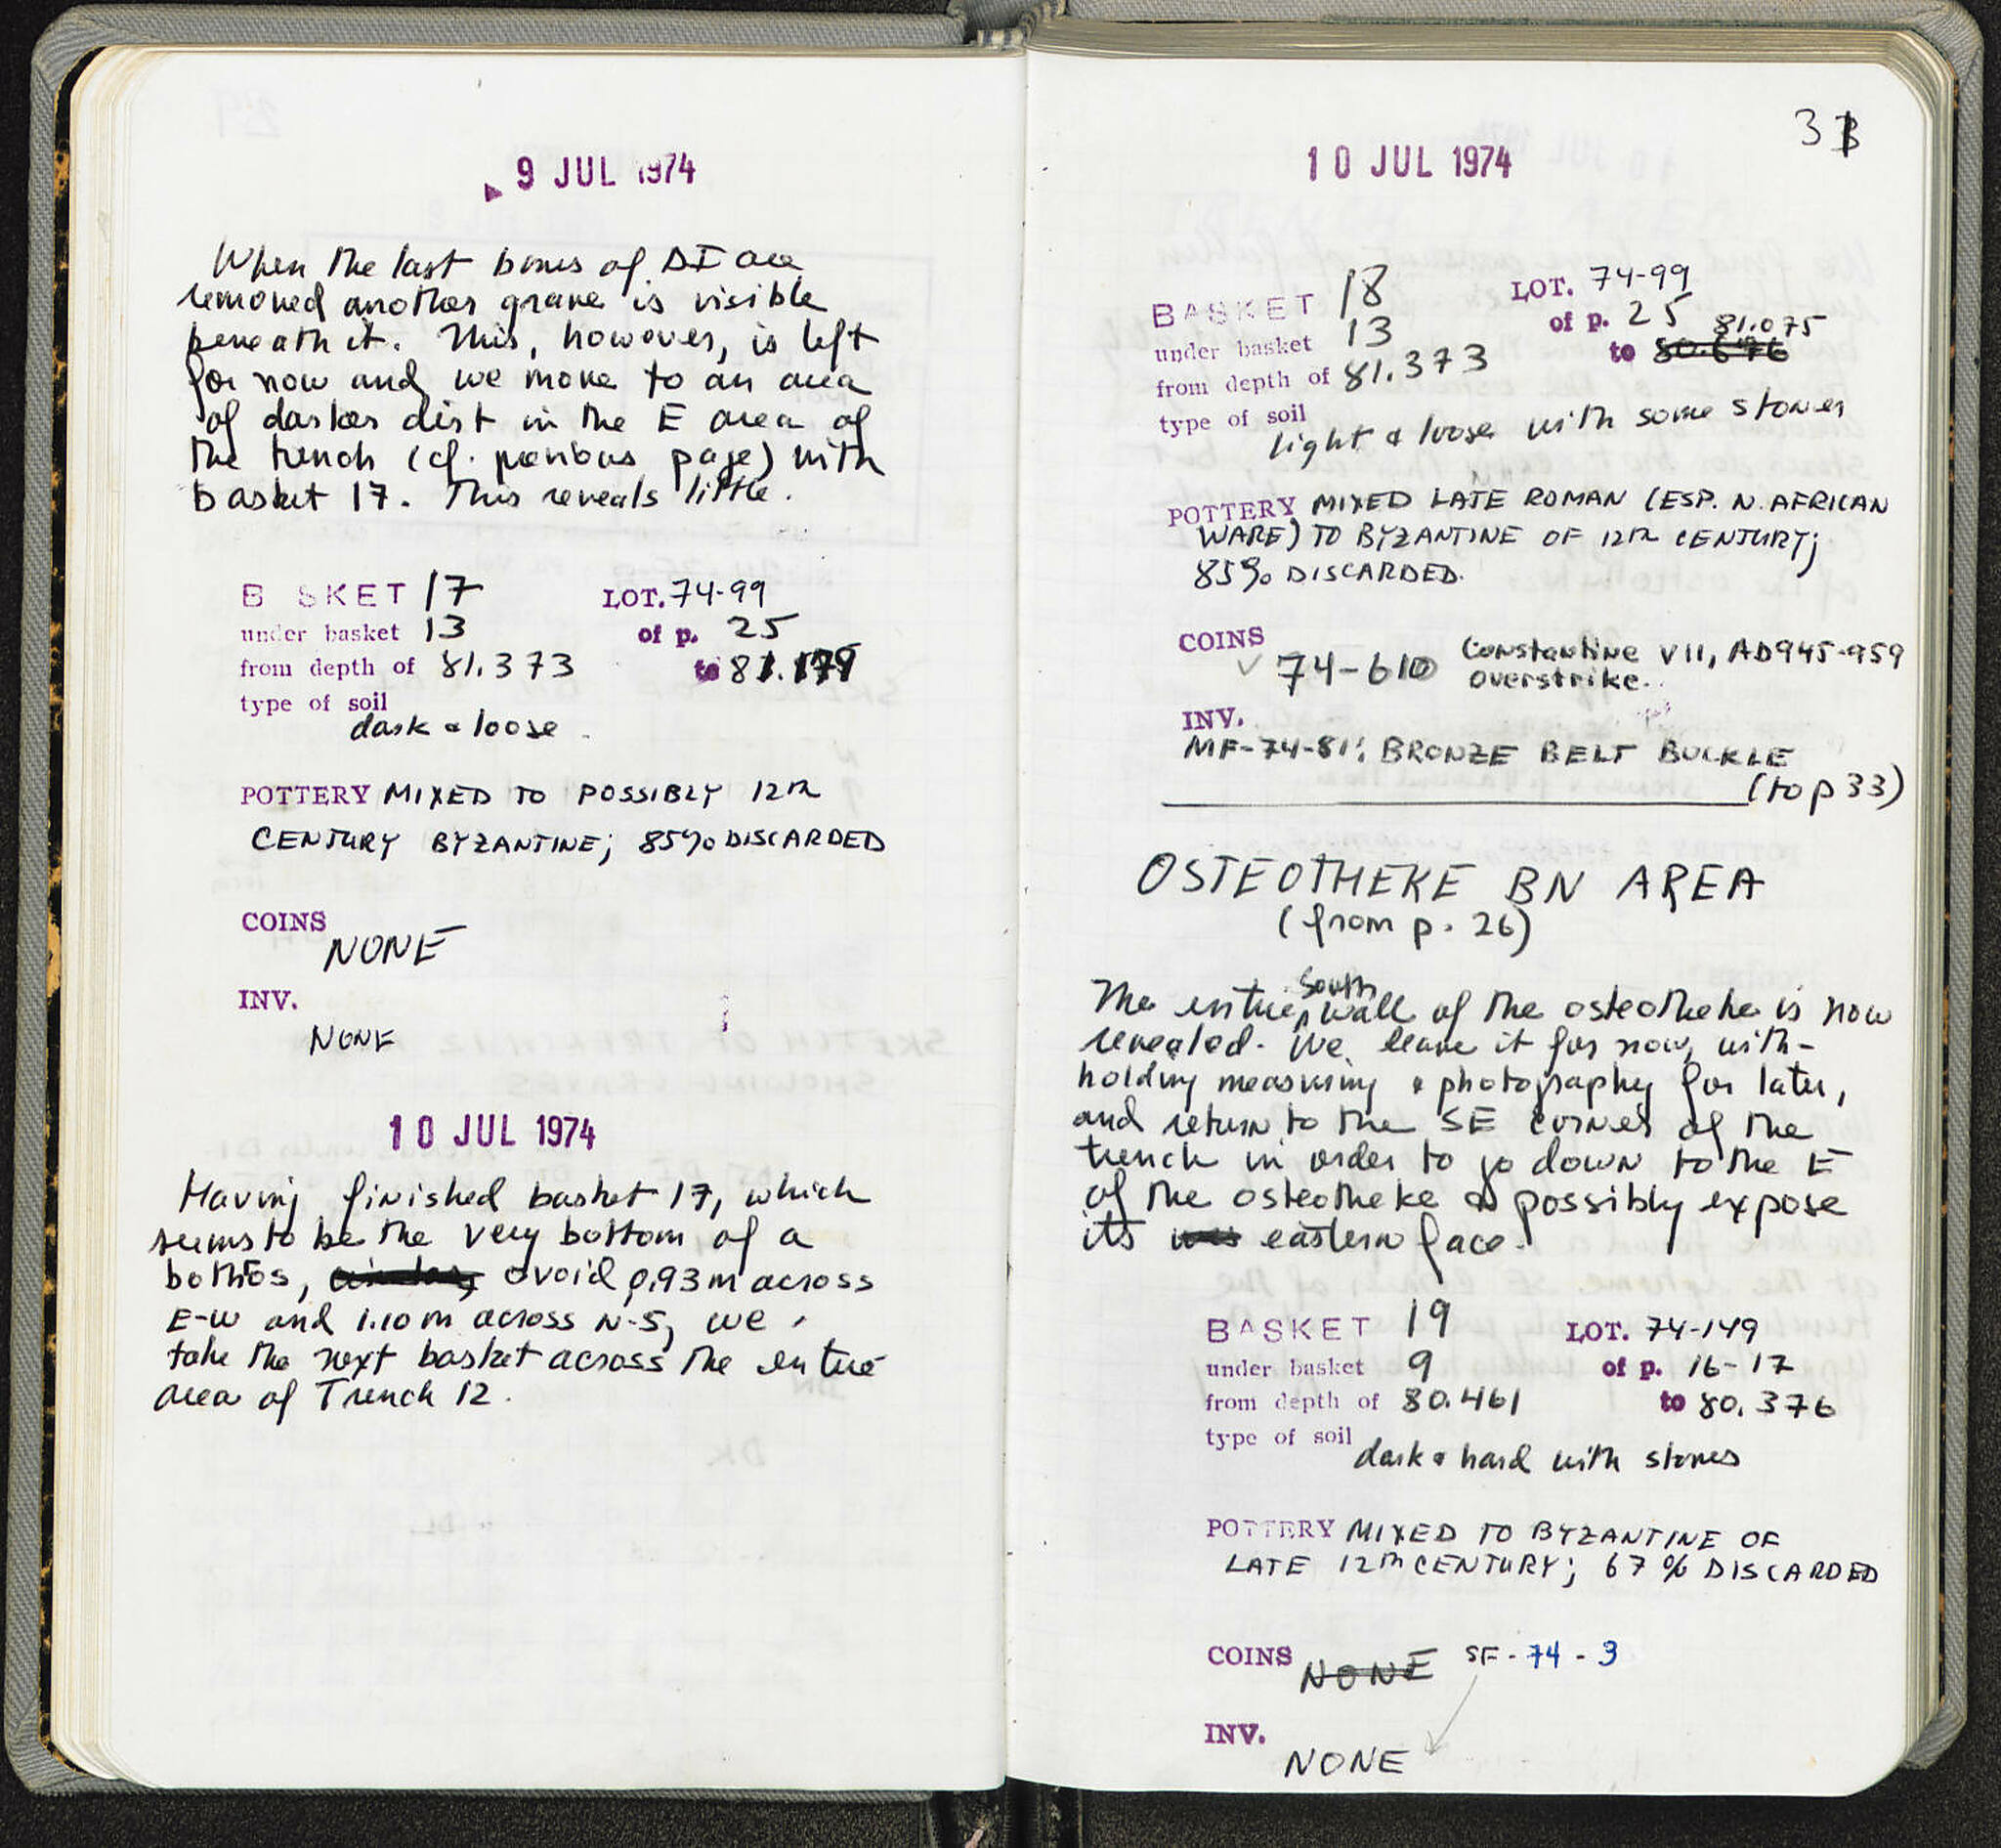 9 JUL 1974
When the last bones of DI are
removed another grave is visible
beneath it. This, however, is left
for now and we move to an area
of darker dirt in the E area of
the trench (cf. previous page) with
basket 17. This reveals little.
B SKET 17 LOT. 74-99
under basket 13 of p. 25
from depth of 81.373 to 81.179
type of soil
dark & loose
POTTERY MIXED TO POSSIBLY 12th
CENTURY BYZANTINE; 85% DISCARDED
COINS
NONE
INV.
NONE
10 JUL 1974
Having finished basket 17, which
seems to be the very bottom of a
bothros, ovoid 0.93m across
E-W and 1.10m across N-S, we
take the next basket across the entire
area of Trench 12.
31
10 JUL 1974
BASKET 18 LOT. 74-99
under basket 13 of p. 25
from depth of 81.373 to 80.676 81.075
type of soil
light & loose with some stones
POTTERY MIXED LATE ROMAN (ESP. N. AFRICAN
WARE) TO BYZANTINE OF 12th CENTURY;
85% DISCARDED.
COINS
✓ 74-610 Constantine VII, AD945-959
overstrike.
INV.
MF-74-81: BRONZE BELT BUCKLE
(to p 33)
OSTEOTHEKE BN AREA
(from p. 26)
The entire South wall of the osteotheke is now
revealed. We leave it for now, with-
holding measuring & photography for later,
and return to the SE corner of the
trench in order to go down to the E
of the osteotheke & possibly expose
its eastern face.
BASKET 19 LOT. 74-149
under basket 9 of p. 16-17
from depth of 80.461 to 80.376
type of soil
dark & hard with stones
POTTERY MIXED TO BYZANTINE OF
LATE 12th CENTURY; 67% DISCARDED
COINS NONE SF-74-3
INV.
NONE